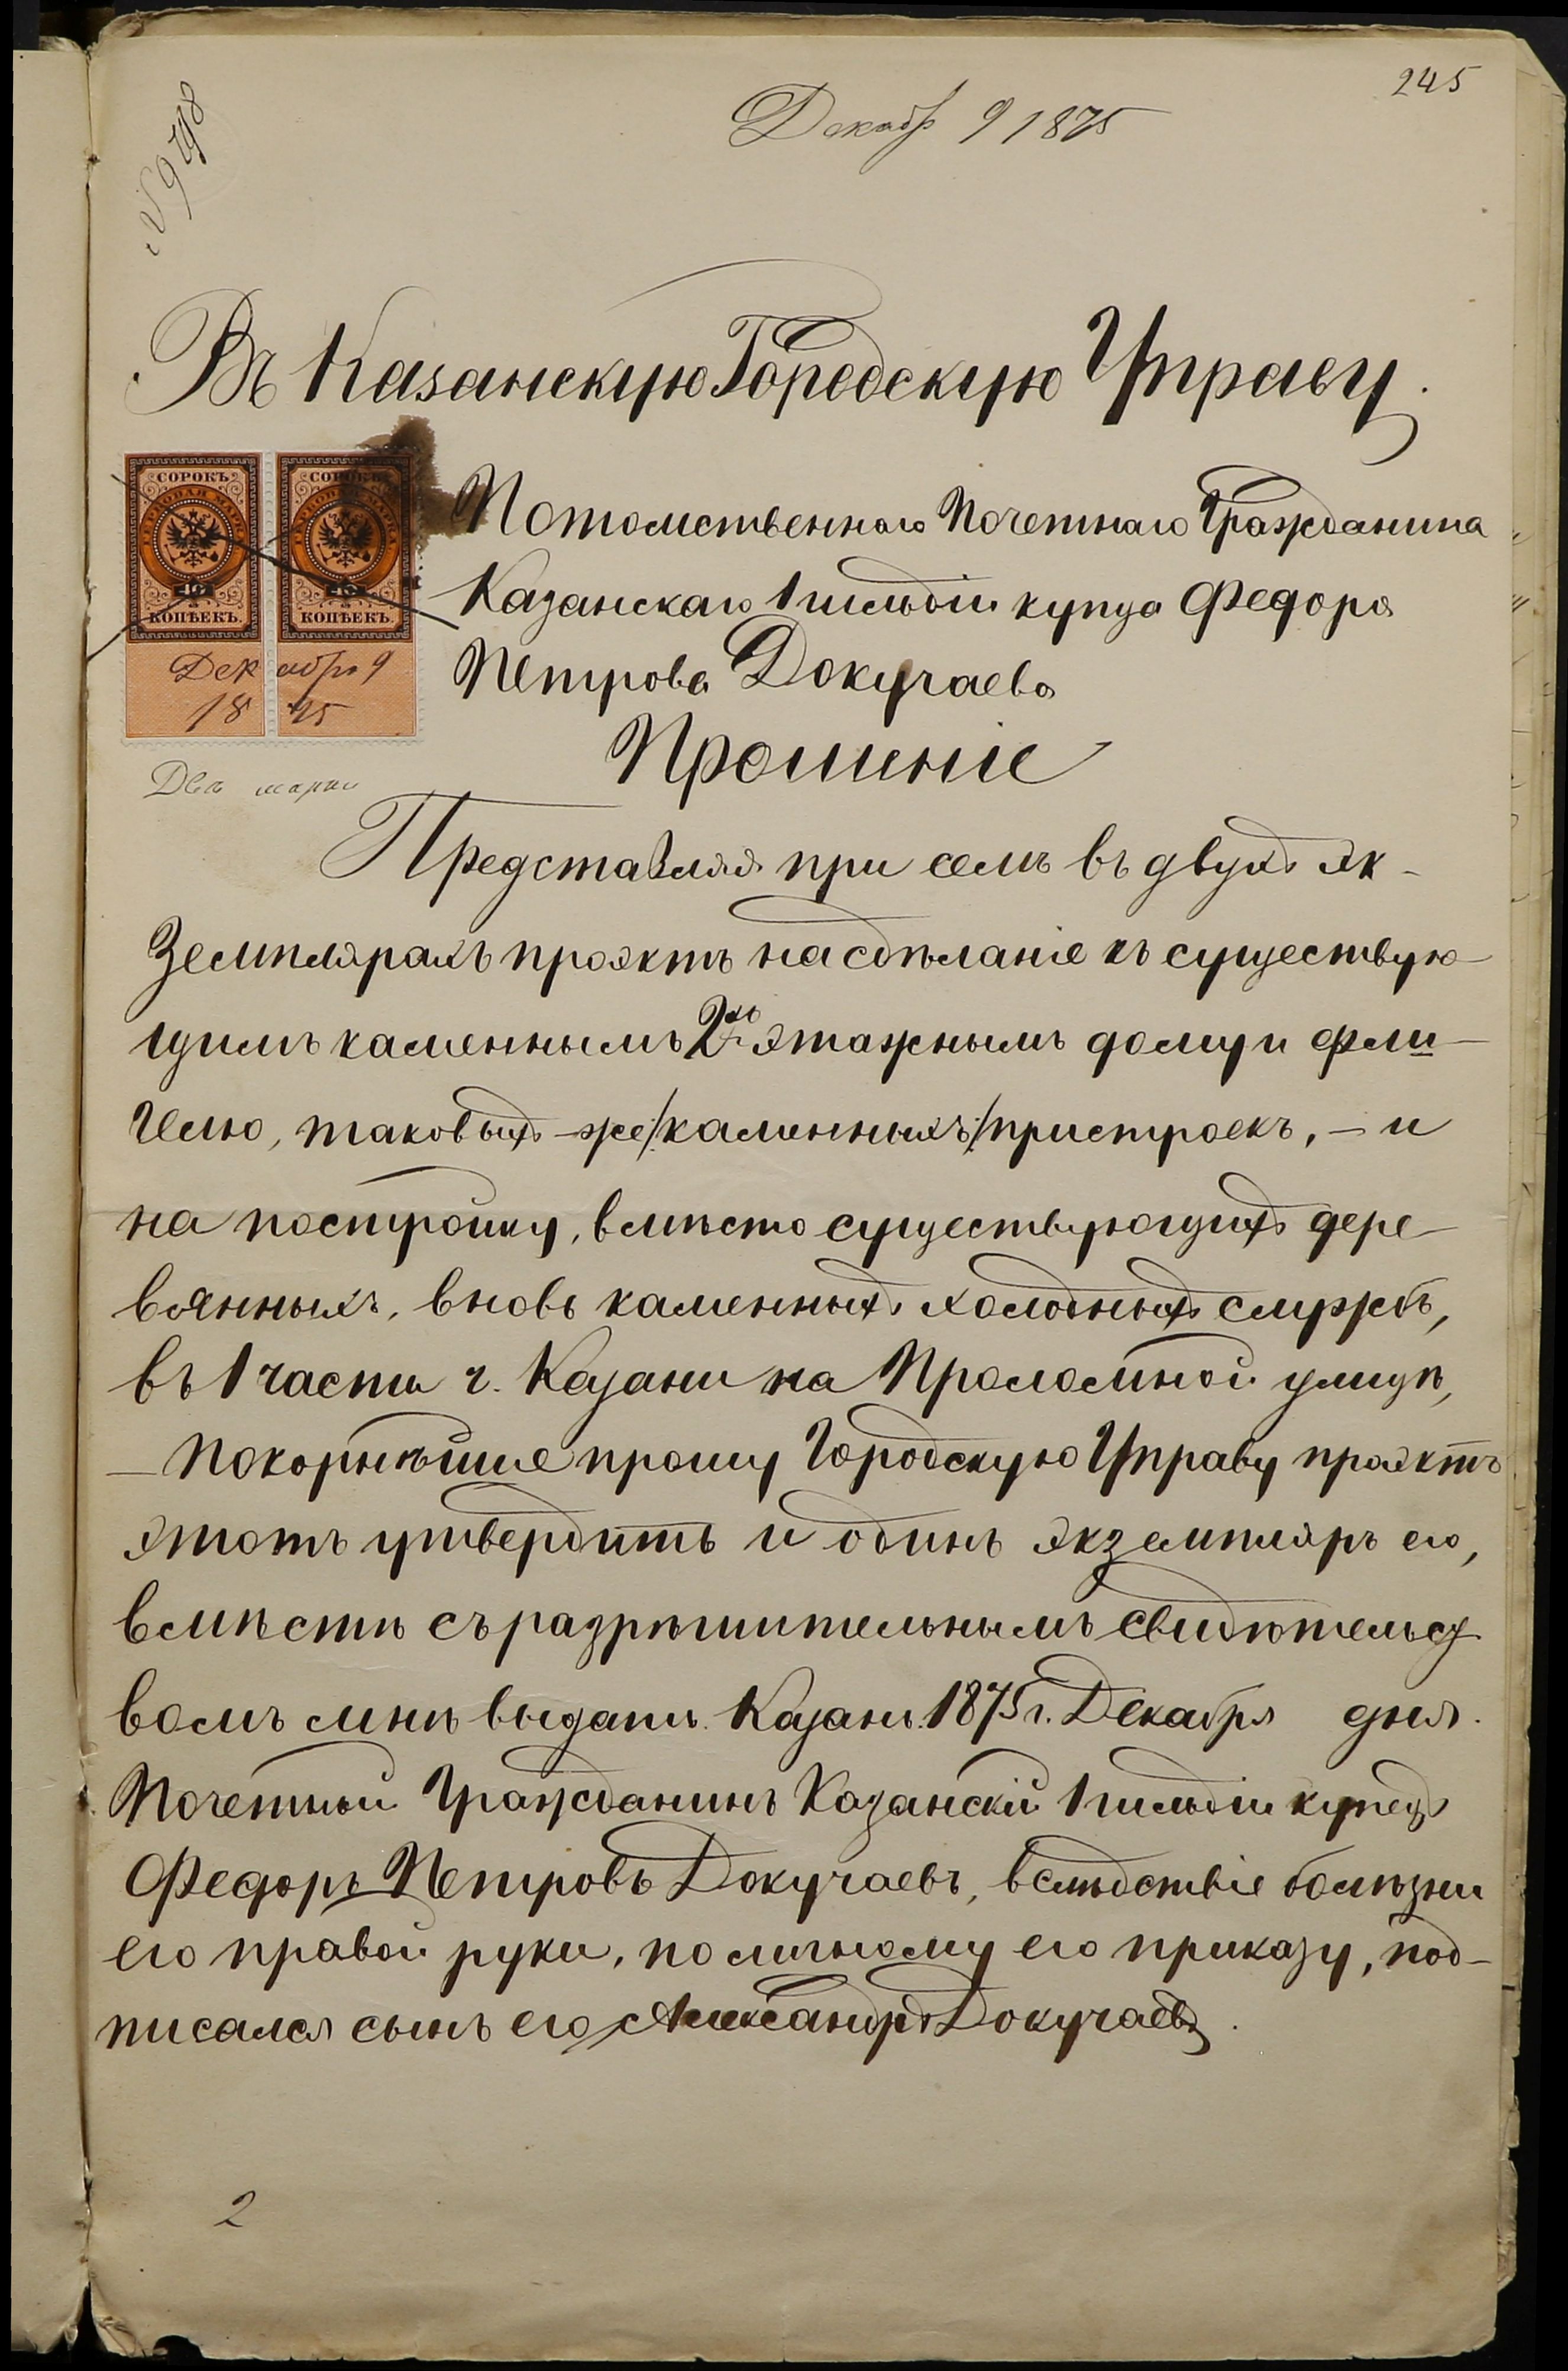 245
Декабр 9 1875
№ 9798
Въ Казанскую Городскую Управу.
СОРОКЪ
ГЕРБОВАЯ МАРКА
40
КОПѢЕКЪ.
СОРОКЪ
ГЕРБОВАЯ МАРКА
40
КОПѢЕКЪ.
Декабря 9
1875
Двѣ марки
Потомственнаго Почетнаго Гражданина
Казанскаго 1 гильдіи купца Федора
Петрова Докучаева
Прошеніе
Представляя при семъ въ двухъ эк-
земплярахъ проэктъ на сдѣланіе къ существую-
щимъ каменнымъ 2хъ этажнымъ дому и фли-
гелю, таковыхъ-же /каменныхъ/ пристроекъ, - и
на постройку, вмѣсто существующихъ дере-
вянныхъ, вновь каменныхъ холодныхъ службъ,
въ 1 части г. Казани на Проломной улицѣ,
- покорнѣйше прошу Городскую Управу проэктъ
этотъ утвердить и одинъ экземпляръ его,
вмѣстѣ съ разрѣшительнымъ свидѣтельст
вомъ мнѣ выдать. Казань. 1875 г. Декабря дня.
Почетный Гражданинъ Казанскій 1 гильдіи купецъ
Федоръ Петровъ Докучаевъ, вслѣдствіе болѣзни
его правой руки, по личному его приказу, под-
писался сынъ его Александръ Докучаевъ.
2